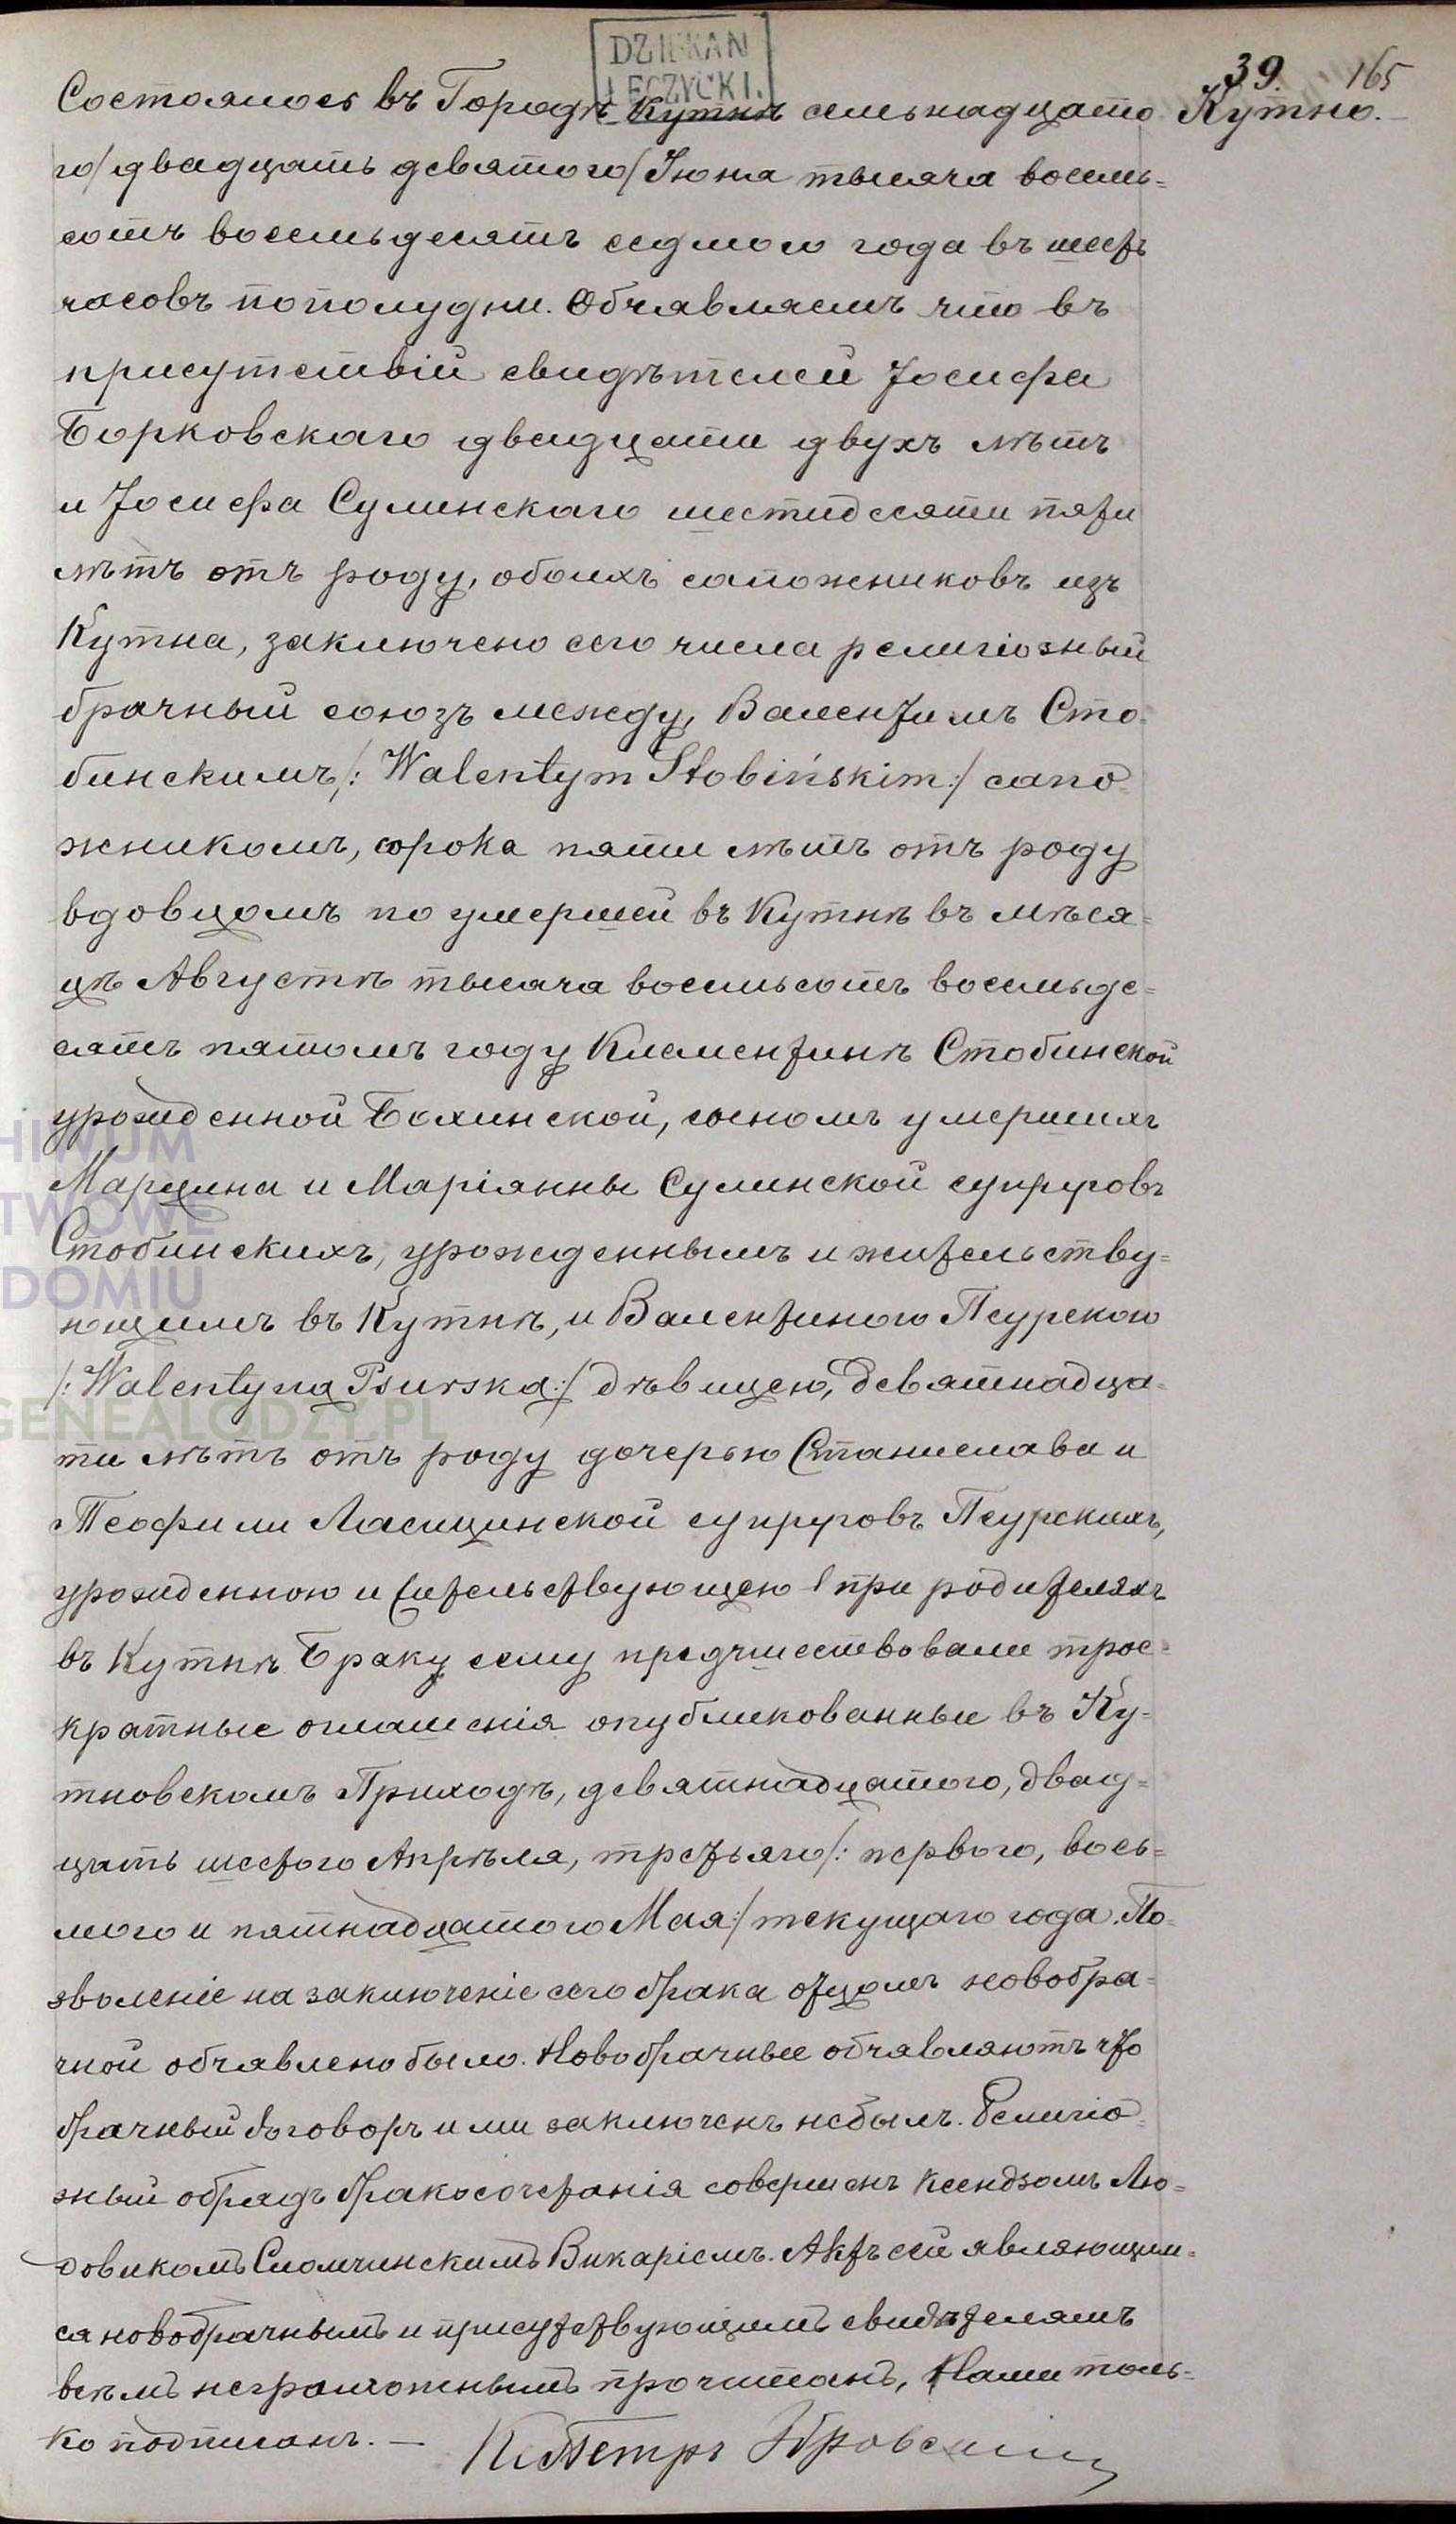 DZIEKAN
ŁĘCZYCKI.
39. 165
Кутно.
Состоялось въ Городѣ Кутнѣ семьнадцато
го/двадцать девятого/Іюня тысяча восемь=
сотъ восемьдесятъ седмого года въ шесть
часовъ пополудни. Объявляемъ что въ
присутствіи свидѣтелей Іосифа
Борковскаго двадцати двухъ лѣтъ
и Іосифа Сулинскаго шестидесяти пяти
лѣтъ отъ роду, обоихъ сапожниковъ изъ
Кутна, заключено сего числа религіозный
брачный союзъ между, Валентимъ Сто=
бинскимъ/: Walentym Stobińskim:/ сапо=
жникомъ, сорока пяти лѣтъ отъ роду
вдовцомъ по умершей въ Кутнѣ въ мѣся=
цѣ Августѣ тысяча восемьсотъ восемьде=
сятъ пятомъ году Клементинѣ Стобинской
урожденной Бохинской, сыномъ умершихъ
Марцина и Маріянны Сулинской супруговъ
Стобинскихъ, урожденнымъ и жительству=
ющимъ въ Кутнѣ, и Валентиною Псурскою
/: Walentyną Psurską:/ дѣвицею, девятнадца=
ти лѣтъ отъ роду дочерью Станислава и
Теофили Ласицинской супруговъ Псурскихъ,
урожденною и жительствующею при родителяхъ
въ Кутнѣ. Браку сему предшествовали трое=
кратные оглашенія опубликованные въ Ку=
тновскомъ Приходѣ, девятнадцатого, двад=
цать шестого Апрѣля, третьяго/: первого, вось=
мого и пятнадцатого Мая:/ текущаго года. По=
зволеніе на заключеніе сего брака отцомъ новобра=
чной объявлено было. Новобрачные объявляютъ что
брачный договоръ ими заключенъ небылъ. Религіо=
зный обрядъ бракосочетанія совершенъ Ксендзомъ Лю=
довикомъ Сломчинскимъ Викаріемъ. Актъ сей являющим=
ся новобрачнымъ и присутствующимъ свидѣтелямъ
всѣмъ неграмотнымъ прочитанъ, Нами толь=
ко подписанъ. —
К. Петръ
HIWUM
TWOWE
DOMIU
GENEALODZY.PL